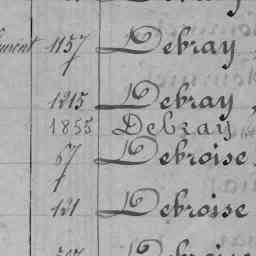 1157 Debray
1215 Debray
1855 Debray
67 Debroise
121 Debroise